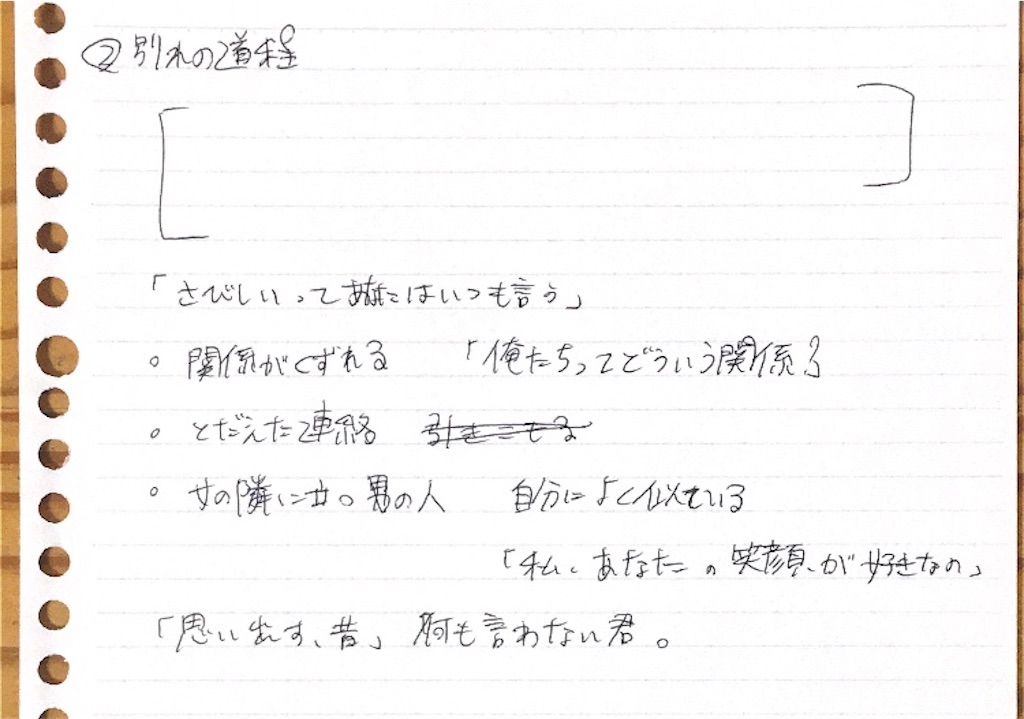 ② 別れの道程
「さびしいって あなたはいつも言う」
。 関係がくずれる 「俺たちってどういう関係?
。 とだえた連絡 引きこもる
。 女の隣に立つ男の人 自分によく似ている
「私、あなたの笑顔が好きなの」
「思い出す、昔」 何も言わない君。